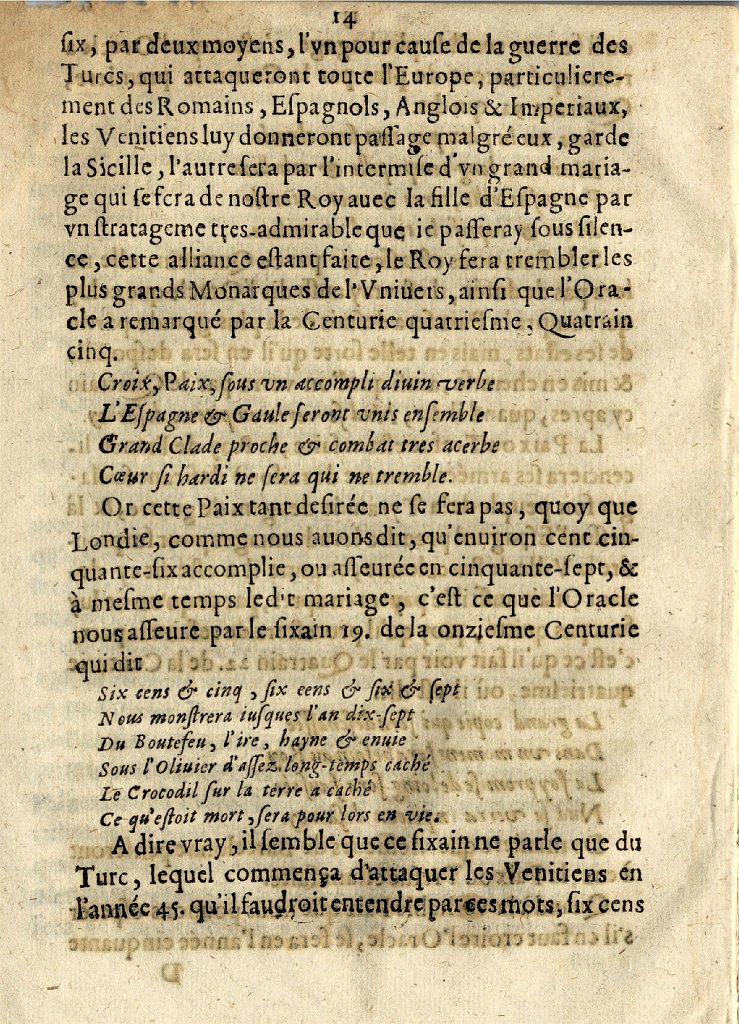 14
ſix, par deux moyens, l'vn pour cauſe de la guerre des
Turcs, qui attaqueront toute l'Europe, particuliere-
ment des Romains, Eſpagnols, Anglois & Imperiaux,
les Venitiens luy donneront paſſage malgré eux, garde
la Sicille, l'autre ſera par l'intermiſe d'vn grand maria-
ge qui ſe fera de noſtre Roy auec la fille d'Eſpagne par
vn ſtratageme tres-admirable que ie paſſeray ſous ſilen-
ce, cette alliance eſtant faite, le Roy fera trembler les
plus grands Monarques de l'Vniuers, ainſi que l'Ora-
cle a remarqué par la Centurie quatrieſme, Quatrain
cinq.
Croix, Paix, ſous vn accompli diuin verbe
L'Eſpagne & Gaule ſeront vnis enſemble
Grand Clade proche & combat tres acerbe
Cœur ſi hardi ne ſera qui ne tremble.
Or cette Paix tant deſirée ne ſe fera pas, quoy que
Londie, comme nous auons dit, qu'enuiron cent cin-
quante-ſix accomplie, ou aſſeurée en cinquante-ſept, &
à meſme temps ledit mariage, c'eſt ce que l'Oracle
nous aſſeure par le ſixain 19. de la onzieſme Centurie
qui dit
Six cens & cinq, ſix cens & ſix & ſept
Nous monſtrera iuſques l'an dix-ſept
Du Boutefeu, l'ire, hayne & enuie
Sous l'Oliuier d'aſſez long-temps caché
Le Crocodil ſur la terre a caché
Ce qu'eſtoit mort, ſera pour lors en vie.
A dire vray, il ſemble que ce ſixain ne parle que du
Turc, lequel commença d'attaquer les Venitiens én
l'année 45. qu'il faudroit entendre par ces mots, ſix cens